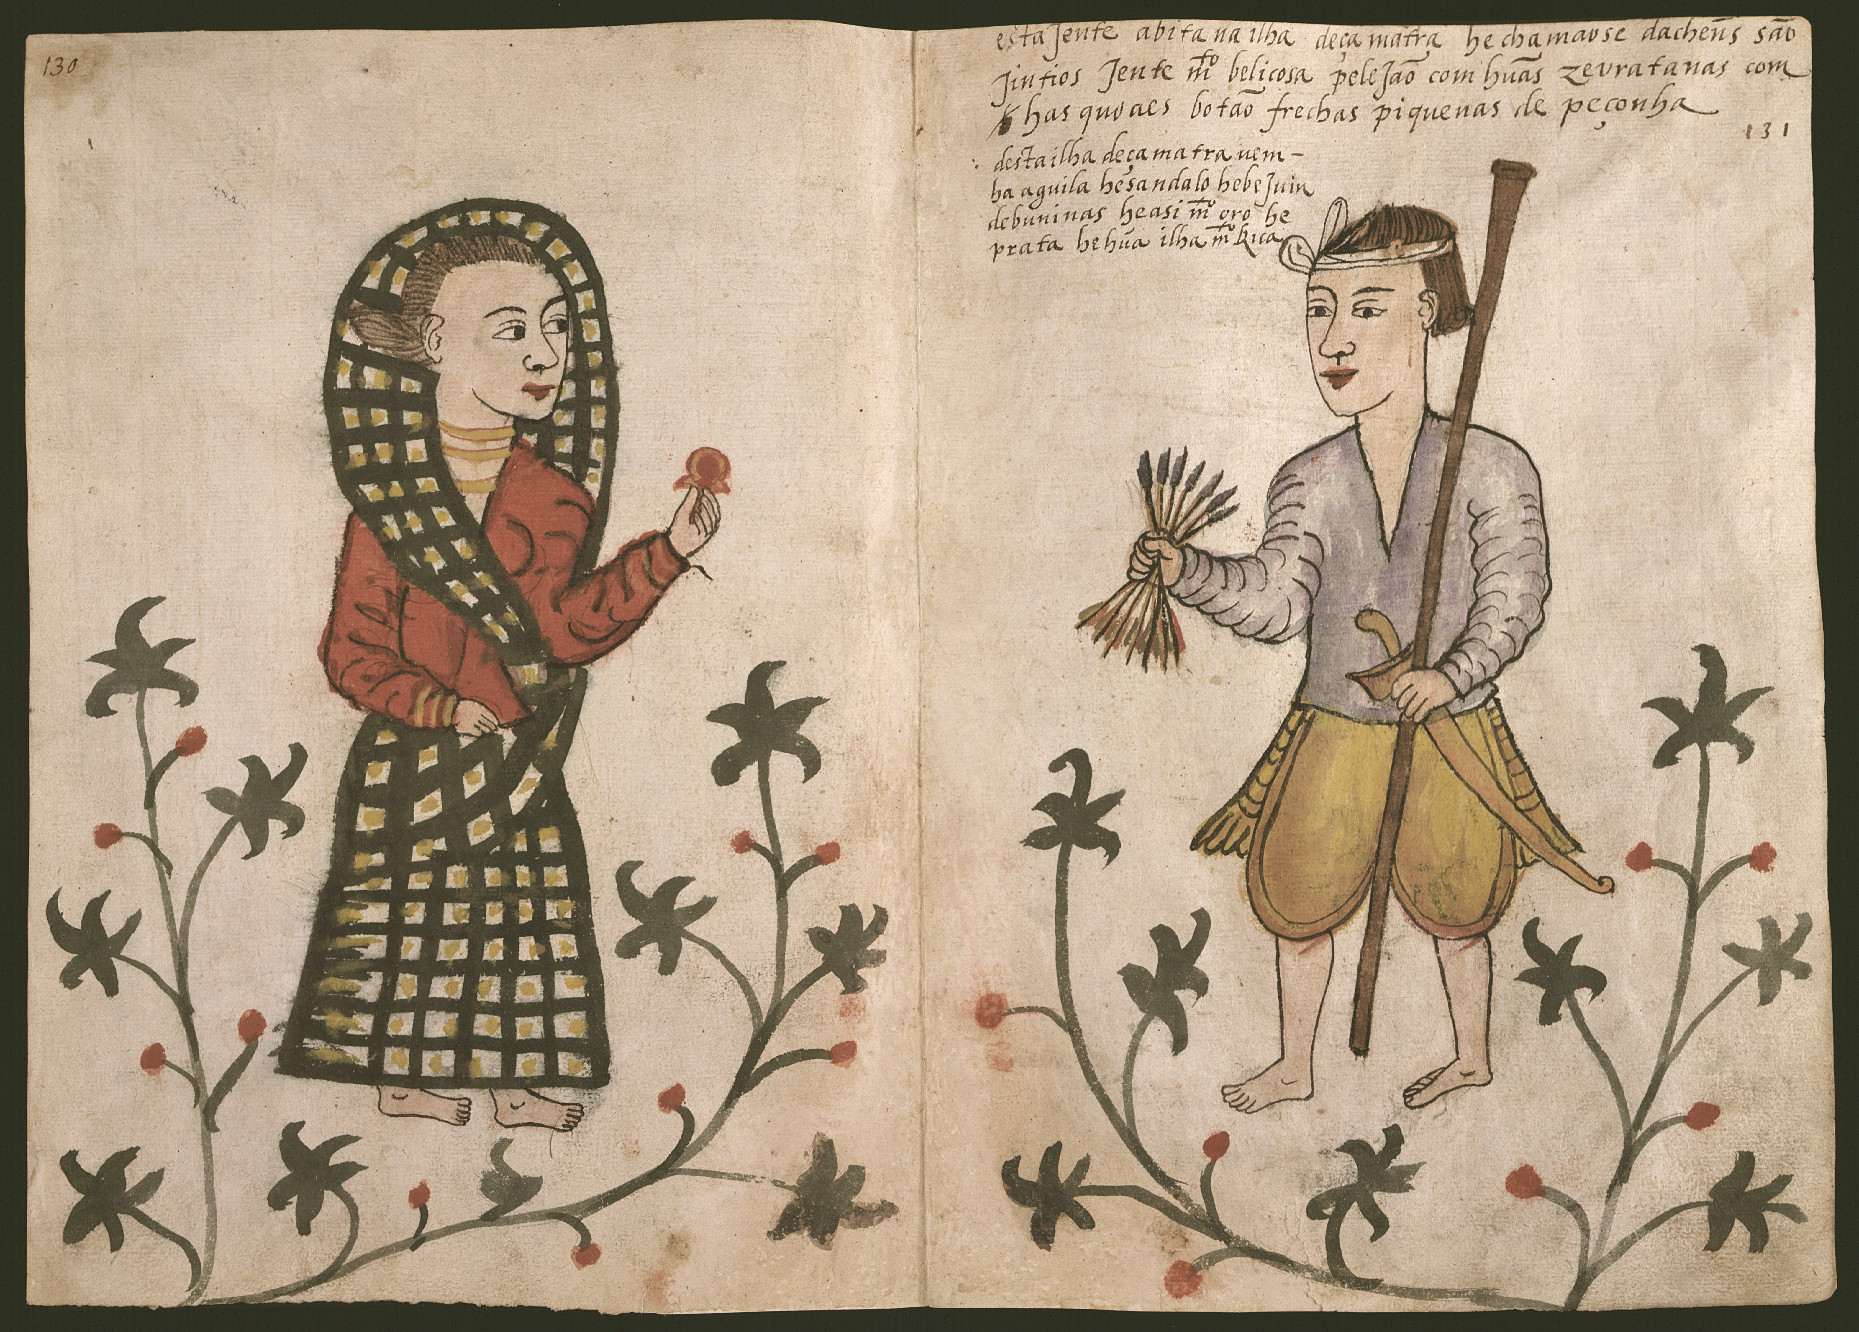 130
esta Jente abita na ilha deçamatra he chamaose dacheñs são
Jintios Jente m^to belicosa peleJão com huãs zevratanas com
has quoaes botão frechas piquenas de peçonha
131
desta ilha deçamatra vem-
ha aguila he sandalo he beJuin
de buninas he asi m^to oro he
prata he hũa ilha m^to Rica